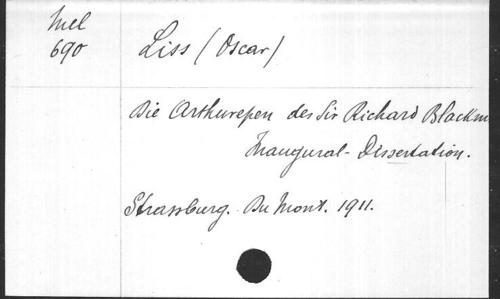 Mel
690
Liss (Oscar)
Die Arthurepen des Sir Richard Blackm
Inaugural-Dissertation.
Strassburg. Du Mont. 1911.